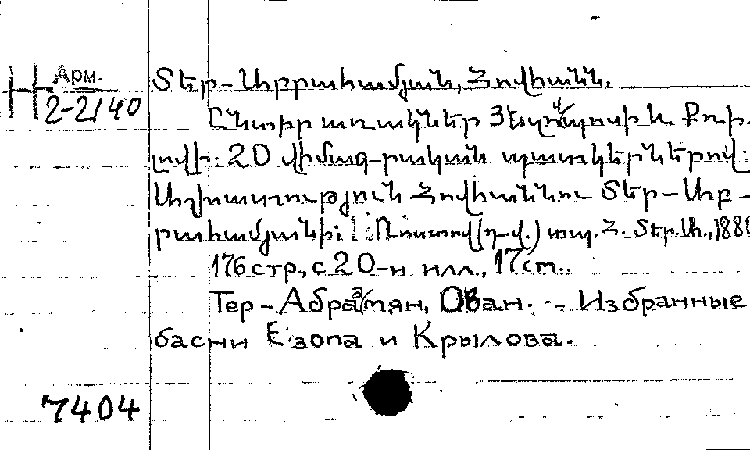 Н Арм.
2-2140
Տեր-Աբրահամյան, Հովհանն.
Ընտիր առակներ Եզովպոսի և Քռի-
լովի: 20 վիմագրական պատկերներով:
Աշխատություն Հովհաննու Տեր-Աբ-
րահամյանի: Ռոստով (դ.վ.) տպ. Հ. Տեր.Ա., 188
176 стр., с 20-и илл., 17 см.
Тер-Абрамян, Ован. - Избранные
басни Езопа и Крылова.
7404